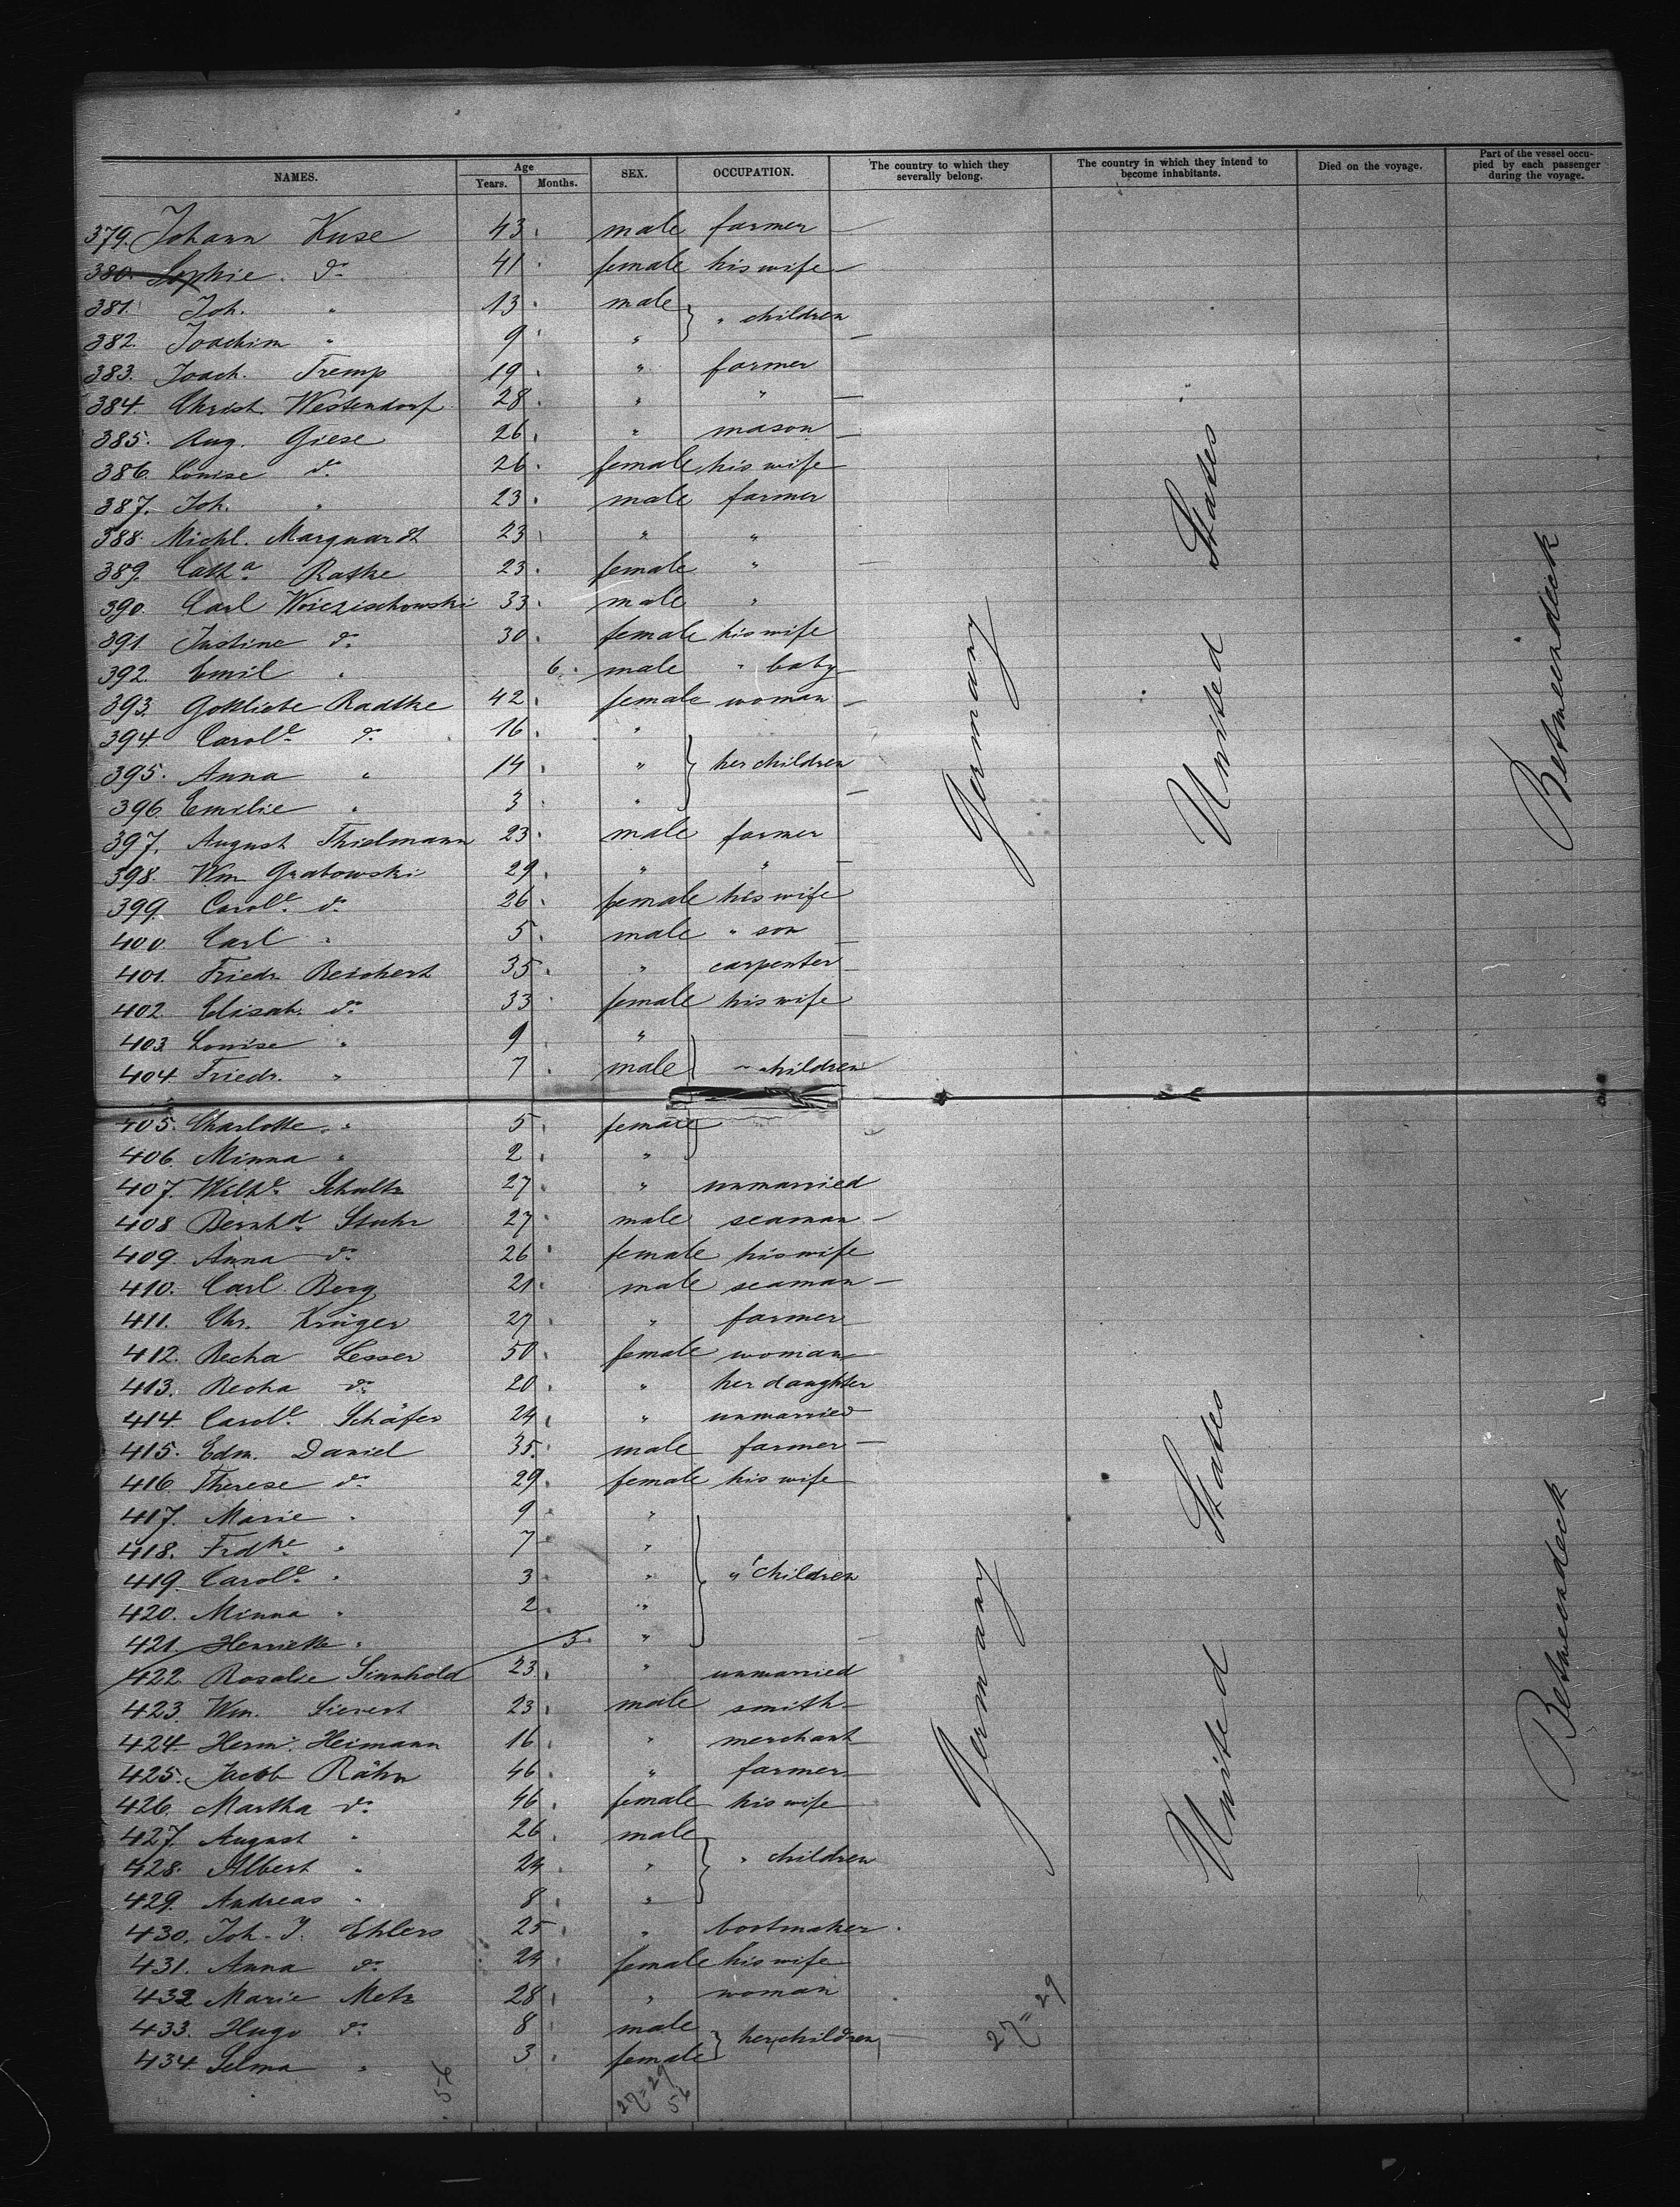 NAMES. Age Years. Months. SEX. OCCUPATION. The country to which they severally belong. The country in which they intend to become inhabitants. Died on the voyage. Part of the vessel occupied by each passenger during the voyage.
379. Johann Kuse 43 male farmer
380. Sophie do 41 female his wife
381. Joh. " 13 male
" children
382. Joachim " 9 "
383. Joach. Tremp 19 " farmer
384. Christ. Westendorf 28 " "
385. Aug. Giese 26 " mason
386. Louise do 26 female his wife
387. Joh. " 23 male farmer
388. Michl. Marquardt 23 " "
389. Catha Rathke 23 female "
390. Carl Woiczischowski 33 male "
391. Justine do 30 female his wife
392. Emil " 6 male " baby
393. Gottliebe Radtke 42 female woman
394. Carole do 16 "
395. Anna " 14 " her children
396. Emilie " 3 "
397. August Thielmann 23 male farmer
398. Wm Grabowski 29 " "
399. Carole do 26 female his wife
400. Carl " 5 male " son
401. Friedr. Reichert 35 " carpenter
402. Elisab. do 33 female his wife
403. Louise " 9 "
404. Friedr. " 7 male " children
405. Charlotte " 5 female
406. Minna " 2 "
407. Wilhe Schultz 27 " unmarried
408 Bernhd Stuhr 27 male seaman
409. Anna do 26 female his wife
410. Carl Berg 21 male seaman
411. Chr. Krüger 27 " farmer
412. Recha Lesser 50 female woman
413. Recha do 20 " her daughter
414. Carole Schäfer 24 " unmarried
415. Edm. Daniel 35 male farmer
416. Therese do 29 female his wife
417. Marie " 9 "
418. Frdke " 7 "
419. Carole " 3 " " children
420. Minna " 2 "
421. Henriette " 5 "
422. Rosalie Sinnhold 23 " unmarried
423. Wm. Sievert 23 male smith
424. Herm. Heimann 16 " merchant
425. Jacob Rähn 46 " farmer
426. Martha do 46 female his wife
427. August " 26 male
428. Albert " 24 " " children
429. Andreas " 8 "
430. Joh. J. Ehlers 25 " bootmaker
431. Anna do 24 female his wife
432 Marie Metz 28 " woman
433. Hugo do 8 male
her children
434. Selma " 3 female
Germany
United States
Betweendeck
Germany
United States
Betweendeck
56
27=29
56
27=29